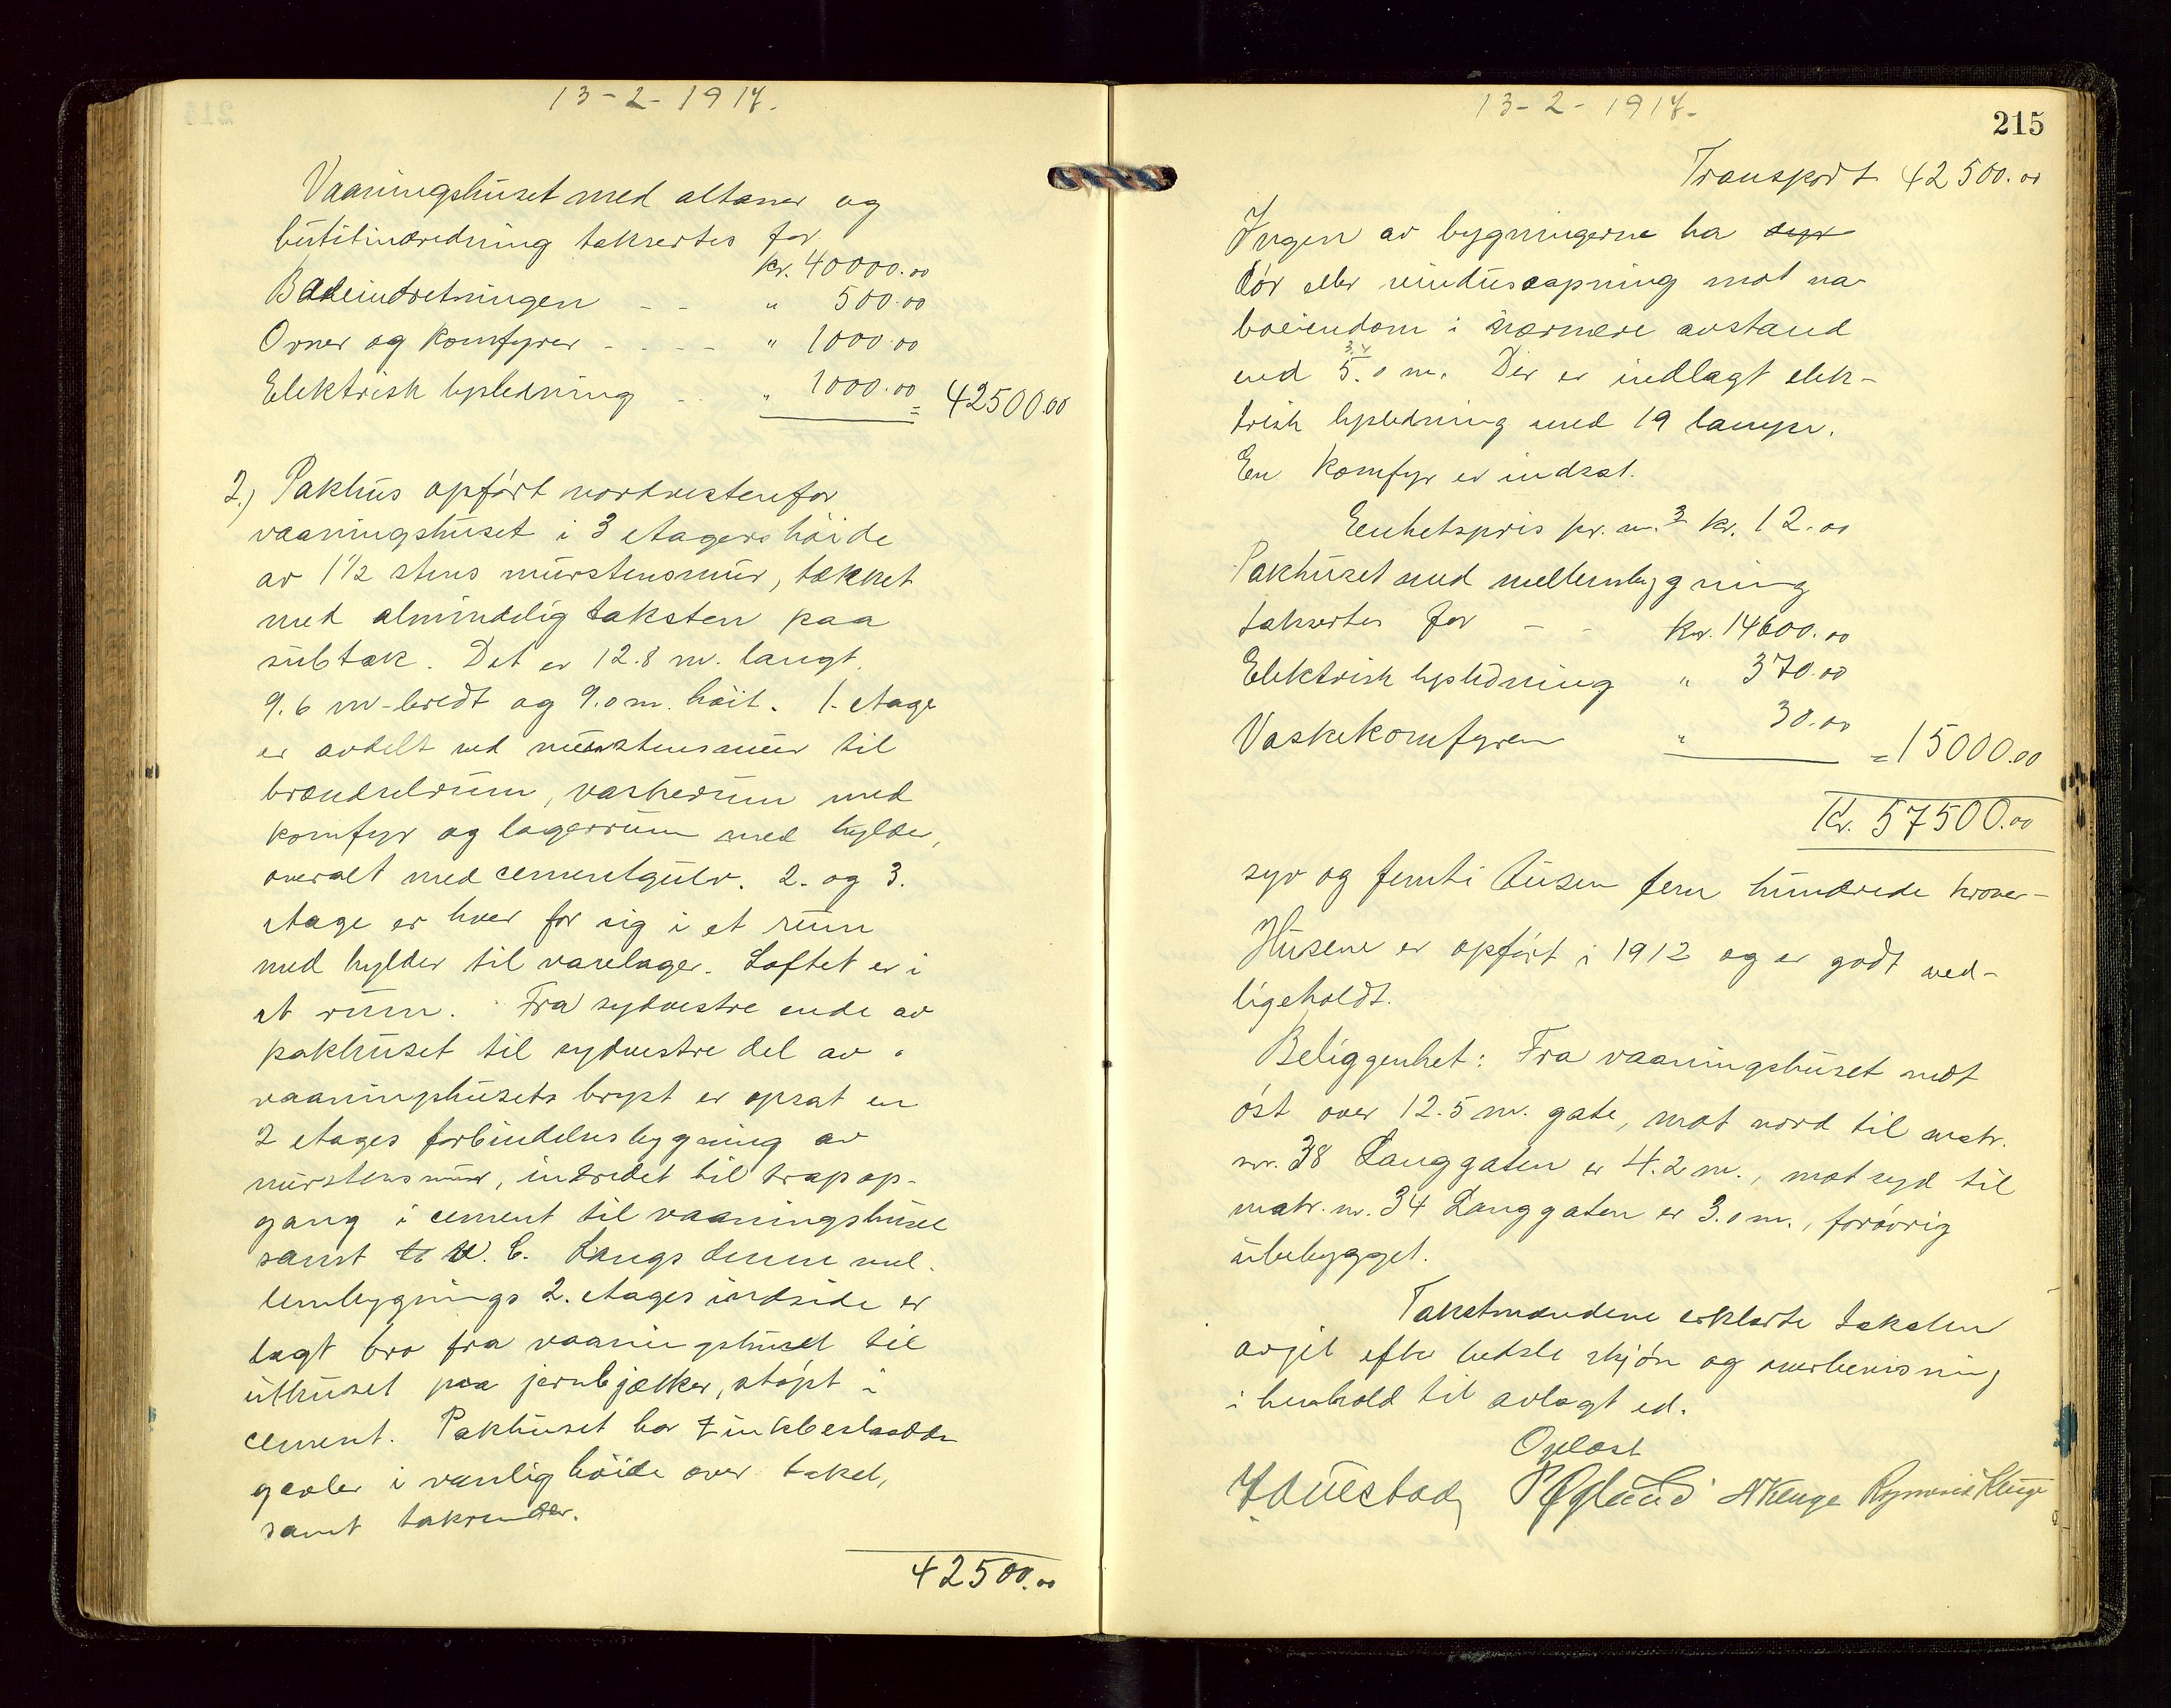 13-2-1917.
Vaaningshuset med altaner og
butikindredning taksertes for
kr. 40000.00
Badeindretningen - - " 500.00
Ovner og komfyrer - - - - " 1000.00
Elektrisk lysledning - - " 1000.00 = 42500.00
2.) Pakhus opført nordvestenfor
vaaningshuset i 3 etagers høide
av 1 1/2 stens murstensmur, tækket
med almindelig taksten paa
subtak. Det er 12.8 m. langt.
9.6 m. bredt og 9.0 m. høit. 1. etage
er avdelt ved murstensmur til
brændselrum, vaskerum med
komfyr og lagerrum med hylder,
overalt med cementgulv. 2. og 3.
etage er hver for sig i et rum
med hylder til varelager. Loftet er i
et rum. Fra sydvestre ende av
pakhuset til sydvestre del av
vaaninghusets bryst er opsat en
2 etages forbindelsesbygning av
murstensmur, indredet til trapop-
gang i cement til vaaningshuset
samt to W.C. Langs denne mel-
lembygnings 2. etages indside er
lagt bro fra vaaningshuset til
uthuset paa jernbjælker, støpt i
cement. Pakhuset har zinkbeslaadde
gavler i vanlig høide over taket,
samt takrender.
42500.00
13-2-1917.
215
Transport 42500.00
Ingen av bygningerne ha
dør eller vindusaapning mot na-
boeiendom i nærmere avstand
3.4
end 5.0 m. Der er indlagt elek-
trisk lysledning med 19 lamper.
En komfyr er indsat.
Eenhetspris pr. m.3 kr. 12.00
Pakhuset med mellembygning
taksertes for - - kr. 14600.00
Elektrisk lysledning " 370.00
Vaskekomfyren " 30.00 = 15000.00
Kr. 57500.00
syv og femti tusen fem hundrede kroner-
Husene er opført i 1912 og er godt ved-
ligeholdt.
Beliggenhet: Fra vaaningshuset mot
øst over 12.5 m. gate, mot nord til matr.
nr. 38 Langgaten er 4.2 m., mot syd til
matr. nr. 34 Langgaten er 3.0 m., forøvrig
ubebygget.
Takstmændene erklærte taksten
avgit efter bedste skjøn og overbevisning
i henhold til avlagt ed.
Oplæst